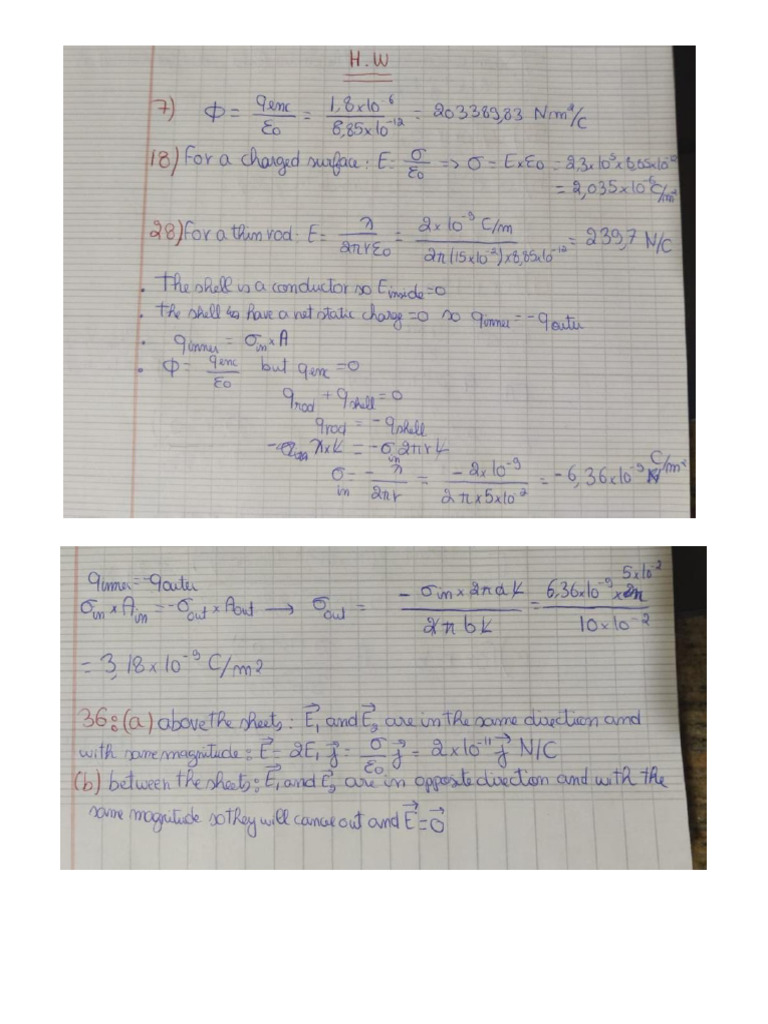 H.W
7) Φ = qenc/ε0 = 1,8x10^-6/8,85x10^-12 = 203389,83 N.m²/C
18) For a charged surface: E = σ/ε0 => σ = E×ε0 = 2,3x10^5x8,85x10^-12
= 2,035x10^-6 C/m²
28) For a thin rod: E = λ/2πrε0 = 2x10^-9 C/m/2π(15x10^-2)x8,85x10^-12 = 239,7 N/C
. The shell is a conductor so E inside = 0
. the shell have a net static charge = 0 so qinner = -qouter
. qinner = σin × A
. Φ = qenc/ε0 but qenc = 0
qrod + qshell = 0
qrod = -qshell
λ×L = -σin 2πrL
σin = -λ/2πr = -2x10^-9/2π×5x10^-2 = -6,36x10^-9 C/m²
qinner = -qouter
σin × Ain = -σout × Aout → σout = -σin × 2πaL/2πbL = 6,36x10^-9 × 5x10^-2/10x10^-2
= 3,18 x10^-9 C/m2
36: (a) above the sheets: E⃗1 and E⃗2 are in the same direction and
with same magnitude: E⃗ = 2E1 j⃗ = σ/ε0 j⃗ = 2x10^-11 j⃗ N/C
(b) between the sheets: E⃗1 and E⃗2 are in opposite direction and with the
same magnitude so they will cancel out and E⃗ = 0⃗